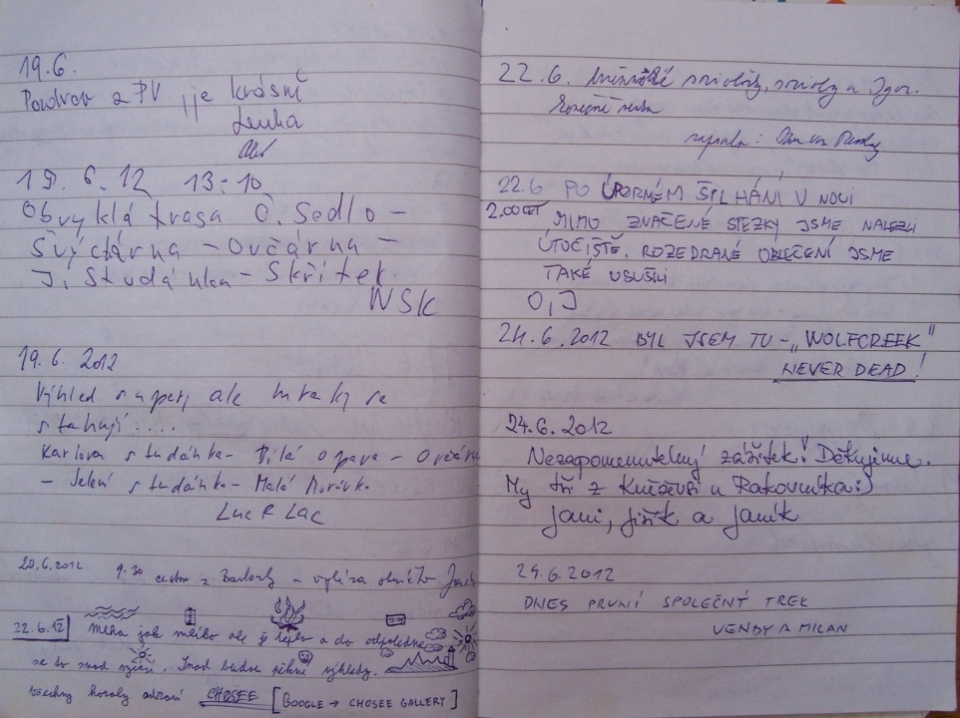 19.6.
Pozdrav z PV, je krásně
Lenka
Aleš
19.6.12 13:10
Obvyklá trasa Č. Sedlo -
Švýcárna - Ovčárna -
J. Studánka - Skřítek.
WSK
19.6.2012
Výhled super, ale mraky se
stahují....
Karlova studánka - Bílá opava - Ovčárn
- Jelení studánka - Malá Morávka.
Luc & Luc
20.6.2012 9:30 cestou z Barborky -
22.6.12 Mlha jak mlíko ale je teplo a do odpoledne
se to snad . Snad budou pěkné výhledy.
Všechny horaly zdraví CHOSEE [GOOGLE → CHOSEE GALLERY]
22.6. a Igor.
zapsala:
22.6 PO ÚPORNÉM ŠPLHÁNÍ V NOCI
2,00
MIMO ZNAČENÉ STEZKY JSME NALEZLI
ÚTOČIŠTĚ. ROZEDRANÉ OBLEČENÍ JSME
TAKÉ USUŠILI
O, J
24.6.2012 BYL JSEM TU - „WOLFCREEK"
NEVER DEAD!
24.6.2012
Nezapomenutelný zážitek! Děkujeme.
My tři z Kněževsi u Rakovníka:)
Jani, Jiřík a Janík
29.6.2012
DNES PRVNÍ SPOLEČNÝ TREK
VENDY A MILAN